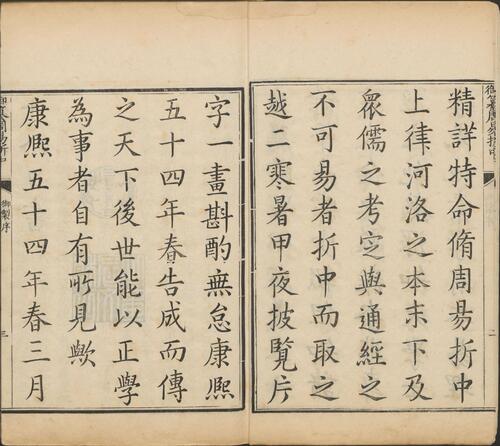 御纂周易折中
精詳特命脩周易折中
上律河洛之本末下及
衆儒之考定與通經之
不可易者折中而取之
越二寒暑甲夜披覽片
二
字一畫斟酌無怠康熙
五十四年春告成而傳
之天下後世能以正學
為事者自有所見歟
康熙五十四年春三月
御製序
三